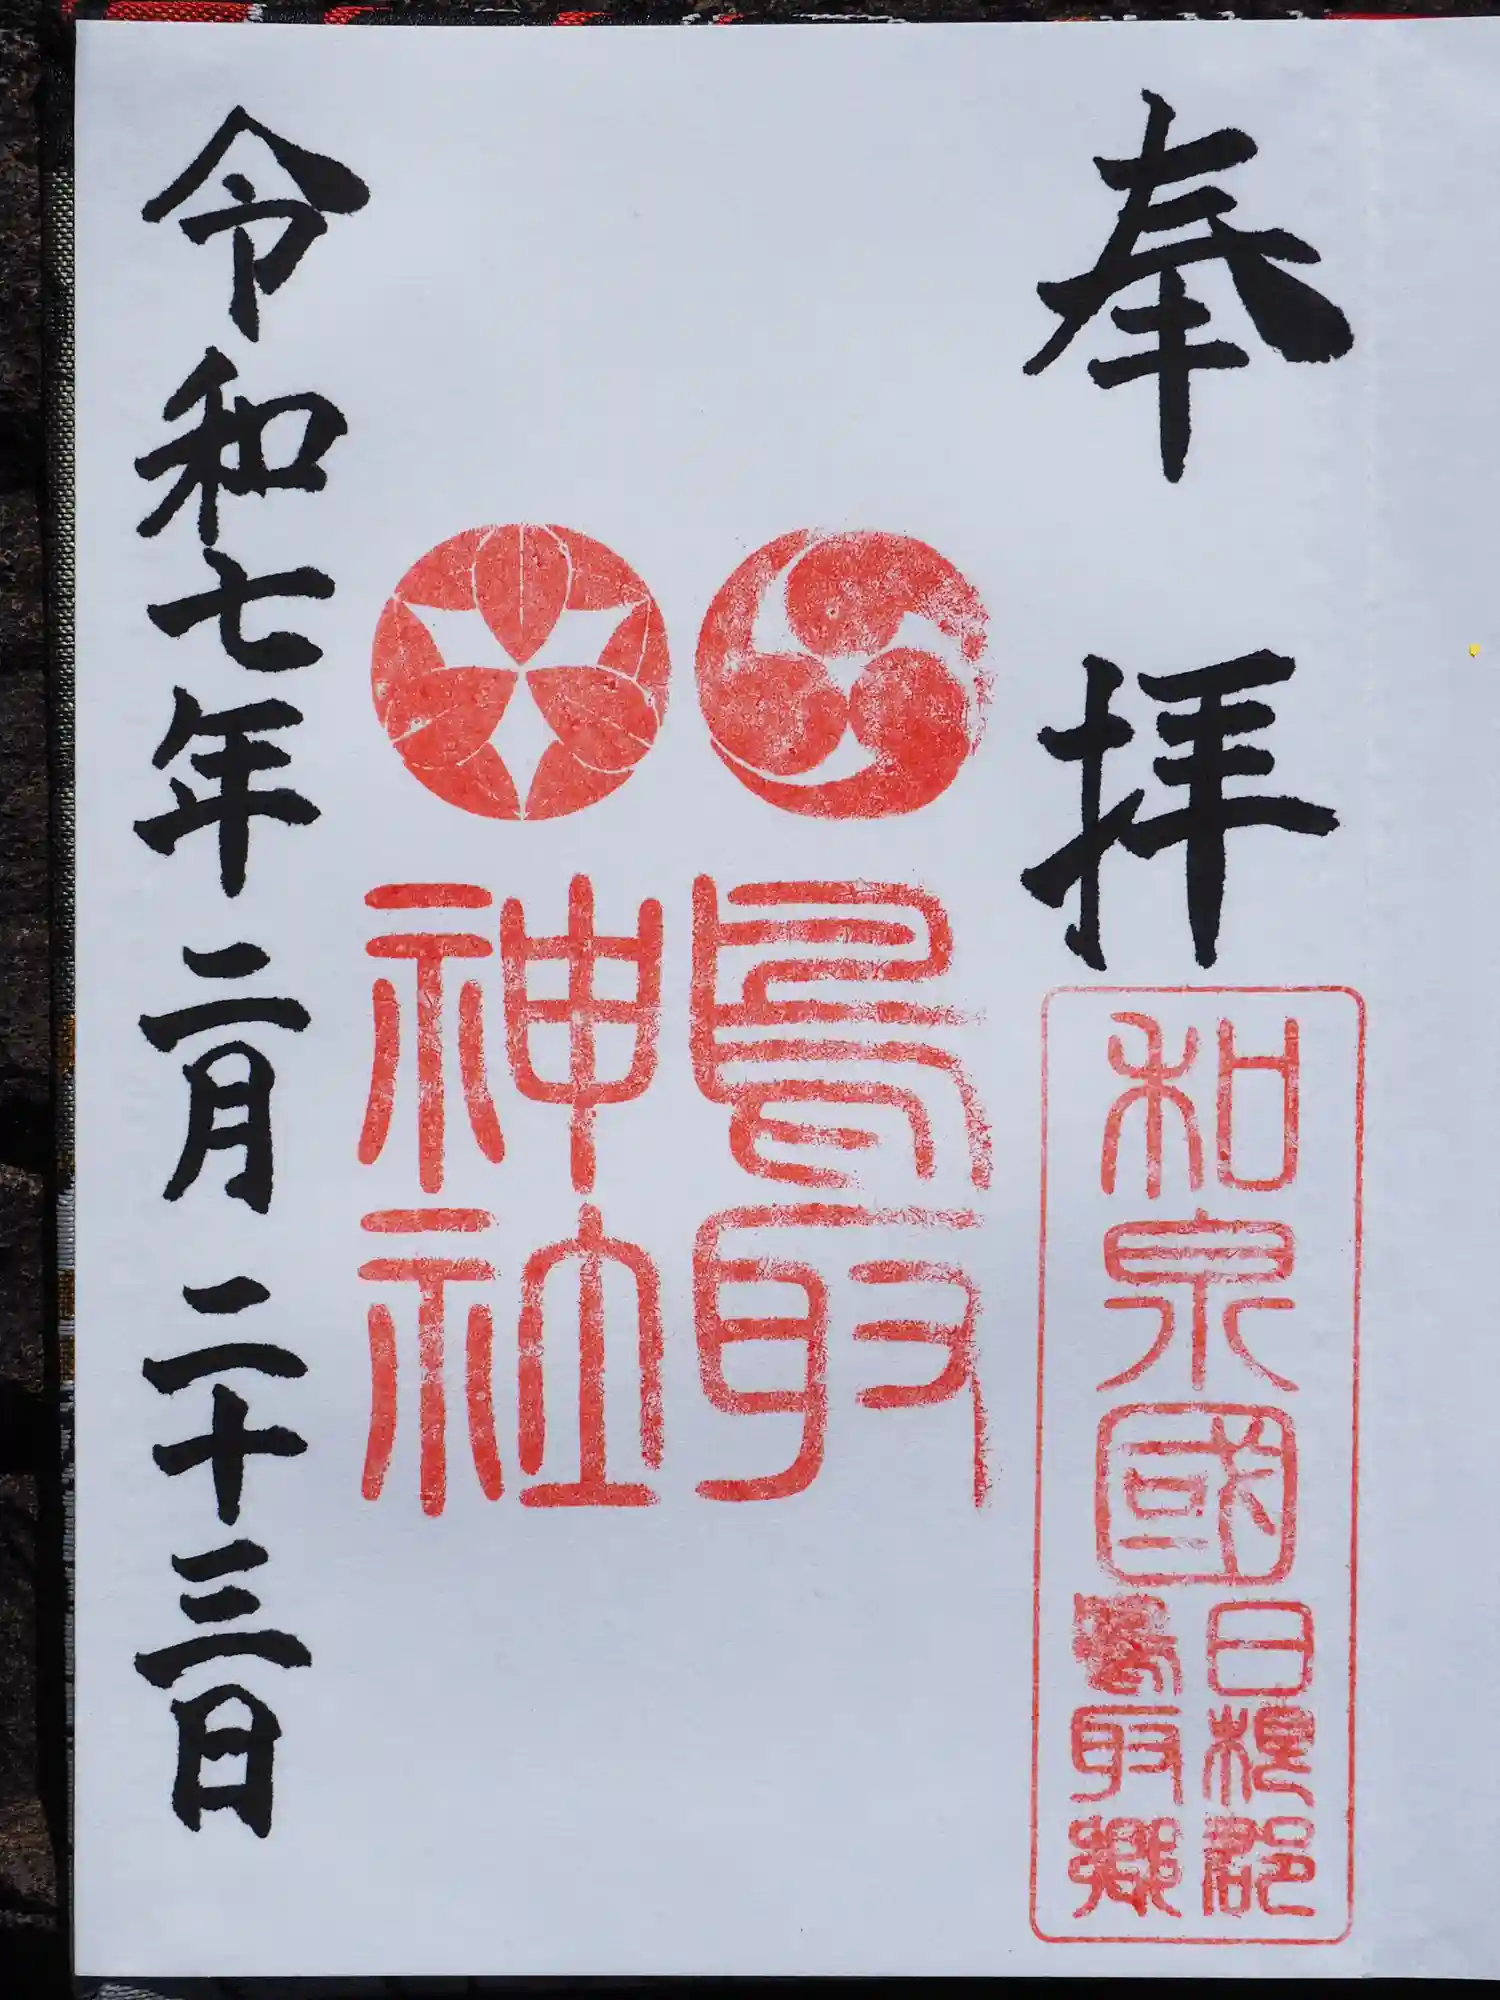 奉拝
和泉國
日根郡
鳥取郷
鳥取
神社
令和七年二月二十三日